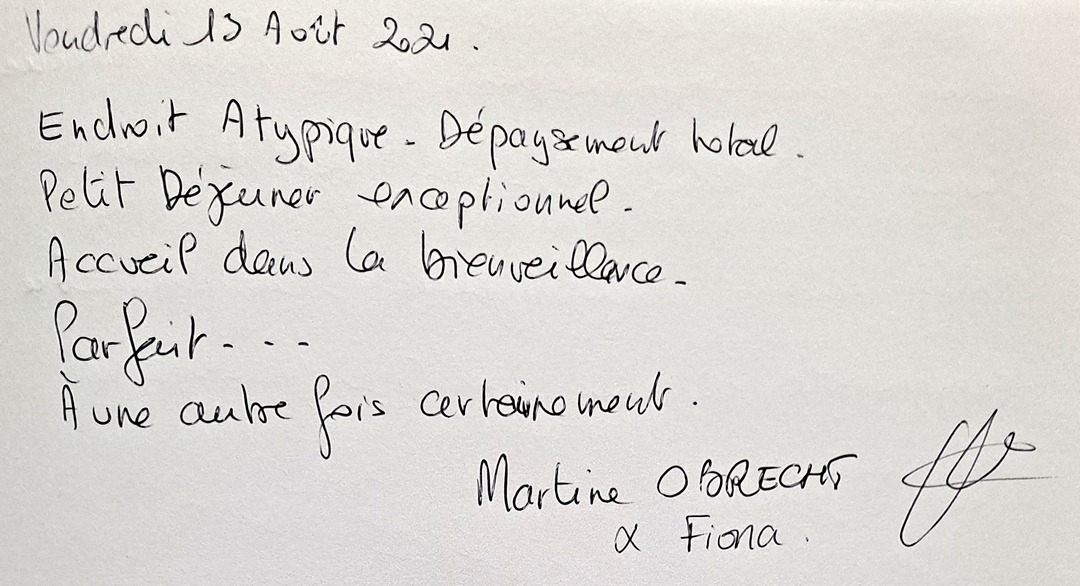 Vendredi 13 Août 2021.
Endroit Atypique - Dépaysement total.
Petit Déjeuner exceptionnel -
Accueil dans la bienveillance -
Parfait - - -
À une autre fois certainement.
Martine OBRECHT
& Fiona.